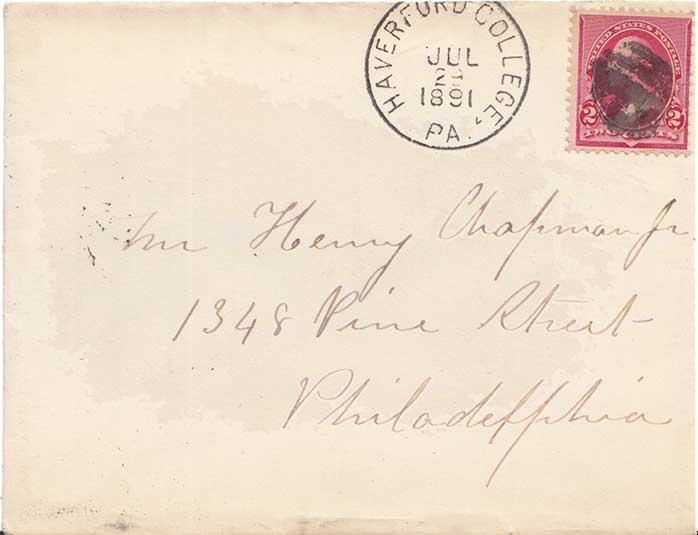 HAVERFORD COLLEGE,
JUL
1891
PA.
UNITED STATES POSTAGE
2 2
TWO CENTS
Mr Henry Chapman Jr
1348 Pine Street
Philadelphia